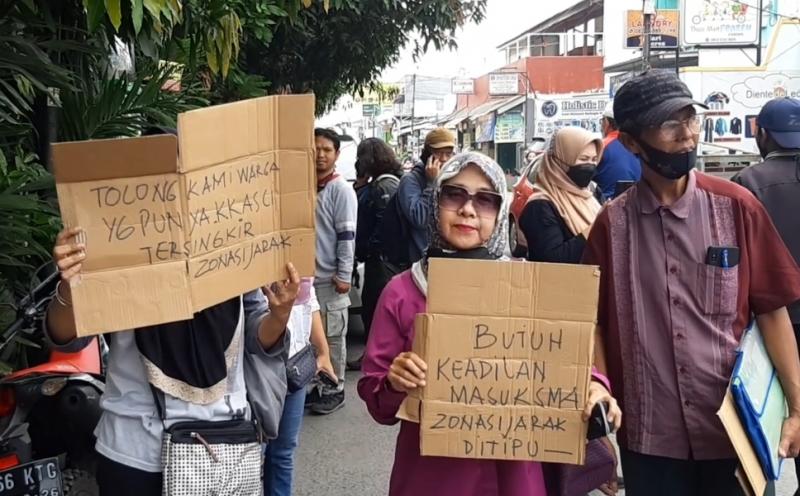 TOLONG KAMI WARGA
YG PUNYA KK ASLI
TERSINGKIR
ZONASI JARAK
BUTUH
KEADILAN
MASUK SMA
ZONASI JARAK
DITIPU —
LAUNDRY
Holistic
KTG